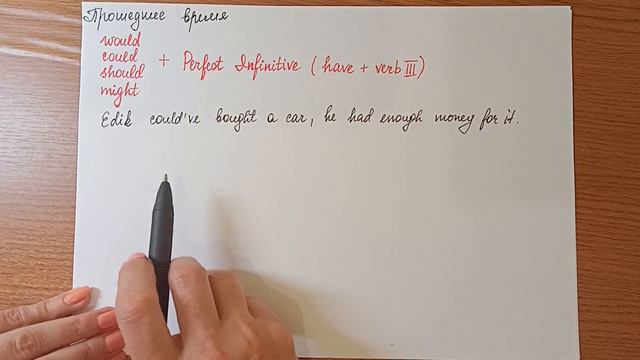 Прошедшее время
would
could
should
might
+ Perfect Infinitive (have + verb III)
Edik could've bought a car, he had enough money for it.